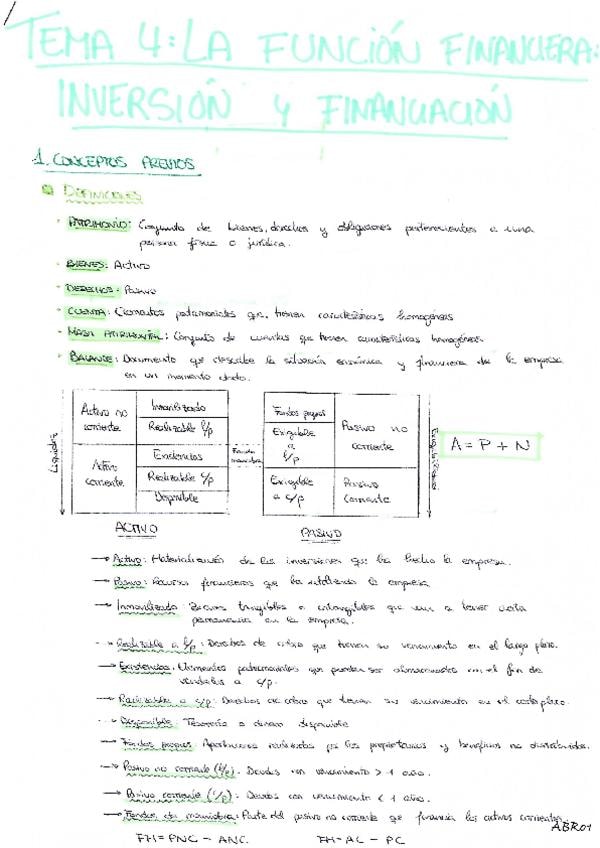 TEMA 4: LA FUNCIÓN FINANCIERA:
INVERSIÓN Y FINANCIACIÓN
1. CONCEPTOS PREVIOS
DEFINICIONES
PATRIMONIO: Conjunto de bienes, derechos y obligaciones pertenecientes a una
persona física o jurídica.
BIENES: Activo
DERECHOS: Pasivo
CUENTA: Elementos patrimoniales que tienen características homogéneas
MASA PATRIMONIAL: Conjunto de cuentas que tienen características homogéneas
BALANCE: Documento que describe la situación económica y financiera de la empresa
en un momento dado.
Liquidez
Activo no corriente
Inmovilizado
Realizable l/p
Activo corriente
Existencias
Realizable c/p
Disponible
ACTIVO
Fondo maniobra
Fondos propios
Exigible a l/p
Exigible a c/p
Pasivo no corriente
Pasivo Corriente
PASIVO
A = P + N
Activo: Materialización de las inversiones que ha hecho la empresa.
Pasivo: Recursos financieros que ha utilizado la empresa
Inmovilizado: Bienes tangibles o intangibles que van a tener cierta
permanencia en la empresa.
Realizable a l/p: Derechos de cobro que tienen su vencimiento en el largo plazo.
Existencias: Elementos patrimoniales que pueden ser almacenados con el fin de
venderlos a c/p.
Realizable a c/p: Derechos de cobro que tienen su vencimiento en el corto plazo.
Disponible: Tesorería o dinero disponible
Fondos propios: Aportaciones realizadas por los propietarios y beneficios no distribuidos.
Pasivo no corriente (l/p). Deudas con vencimiento > 1 año.
Pasivo corriente (c/p): Deudas con vencimiento < 1 año.
Fondos de maniobra: Parte del pasivo no corriente que financia los activos corrientes.
FM = PNC - ANC. FM = AC - PC
ABR01